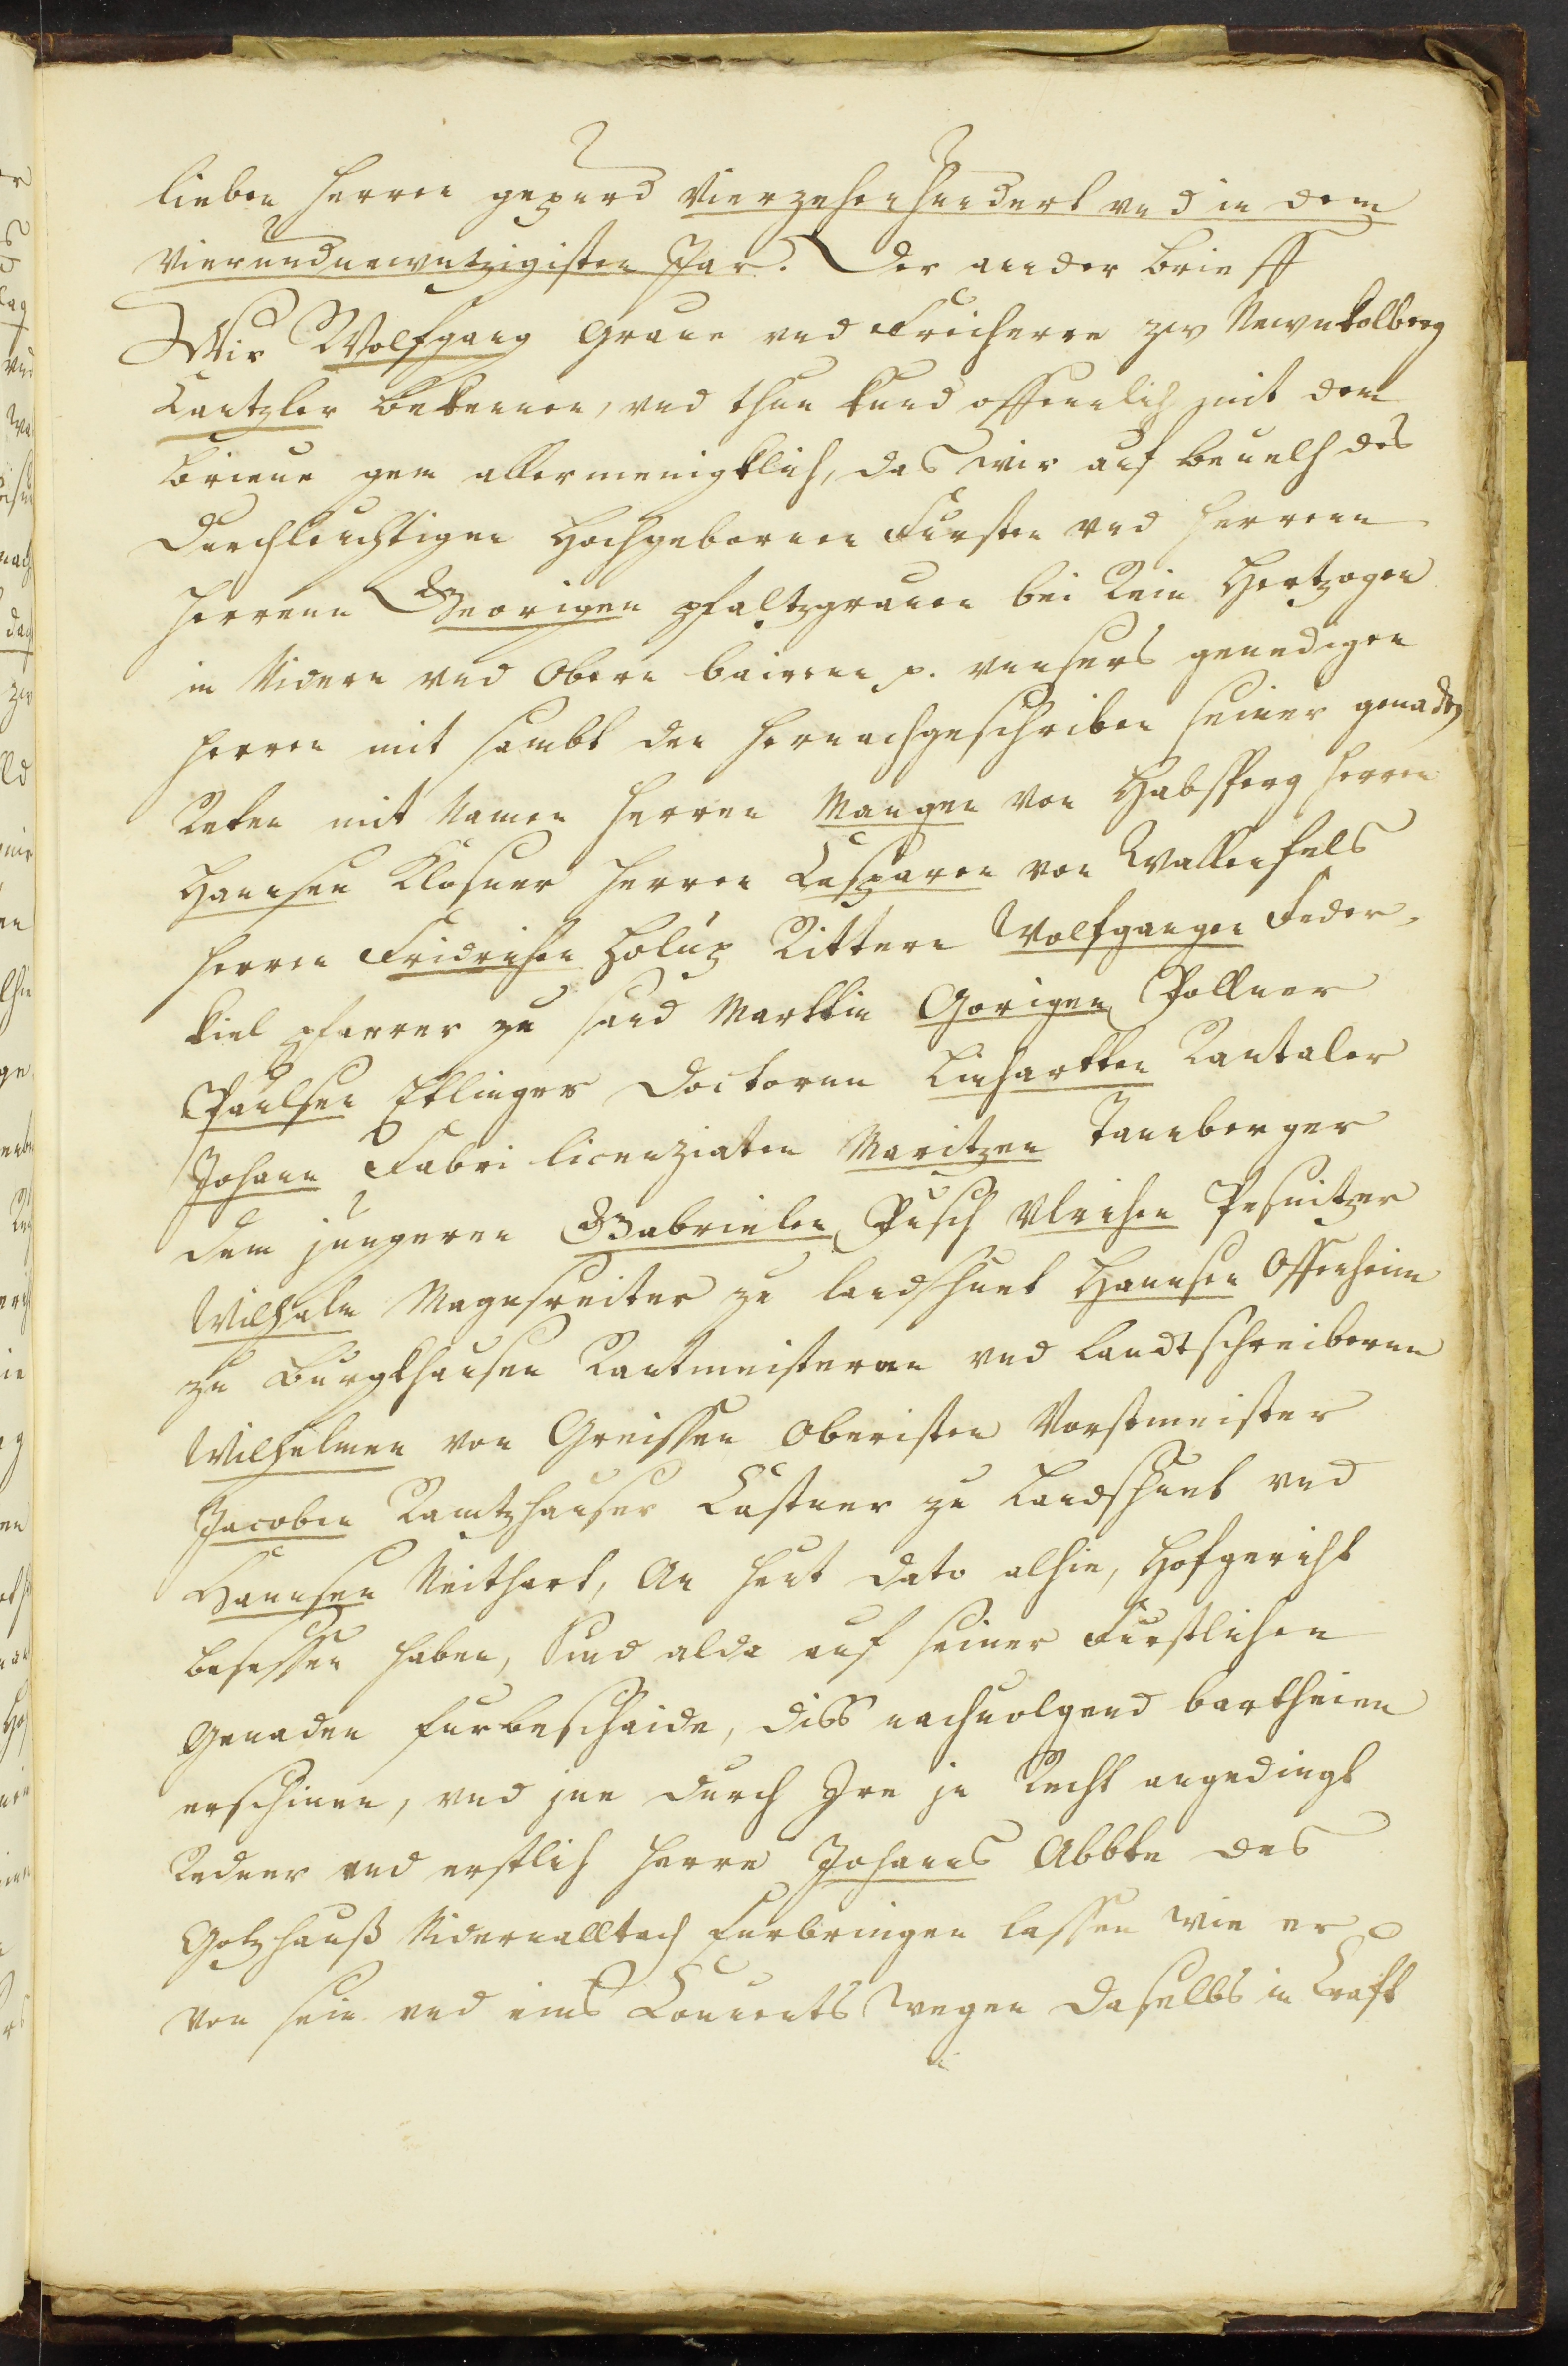 lieben herren gepurd Vierzehenhundert vnd in dem
Vierundnewntzigisten Jar. Der ander brieff
Wir Wolfgang Graue vnd Freiherre zw Newnkolberg
Cantzler bekennen, vnd thun kund offennlich mit dem
brieue gem allermenigklich, das wir auf beuelh des
Durchleuchtigen Hochgebornnen Fursten vnd herrenn
herrenn Georigen pfaltzgrauen bei Rein Hertzogen
in Nidern vnd Obern bairenn p. vnnsers genedigen
herren mit sambt den hernachgeschriben seiner genaden
Reten mit Namen herren Mangen von Habsperg herren
Hannsen Klosner herren Casparen von Wallenfels
herren Fridrichen Holup Rittern Wolfgangen Feder-
kiel pfarrer zu sand Marttin Gorigen Pollner
Paulsen Etlinger Doctornn Linhartten Rantaler
Johann Fabri licenziaten Maritzen Tannberger
dem jungeren Gabrielen Pusch Vlrichen Pesnitzer
Wilhalm Magensreiter zu landshuet Hannsen Offenheim
zu Burgkhausen Rantmeisteren vnd Landtschreibernn
Wilhelmen von Greissen Oberisten Vorstmeister
Jacoben Ramtzhauser Castner zu Landshuet vnd
Hannsen Neithart, An heut dato alhie, Hofgericht
besessen haben, Sind alda auf seiner Furstlichen
Genaden furbeschaide, diss nachuolgend bartheien
erschinen, vnd jne durch Jre je Recht angedingt
Redner vnd erstlich herre Johanns Abbte des
Gotzhauß Nidernalltach furbringen lassen wie er
von sein vnd eins Conuents wegen daselbs in Craft